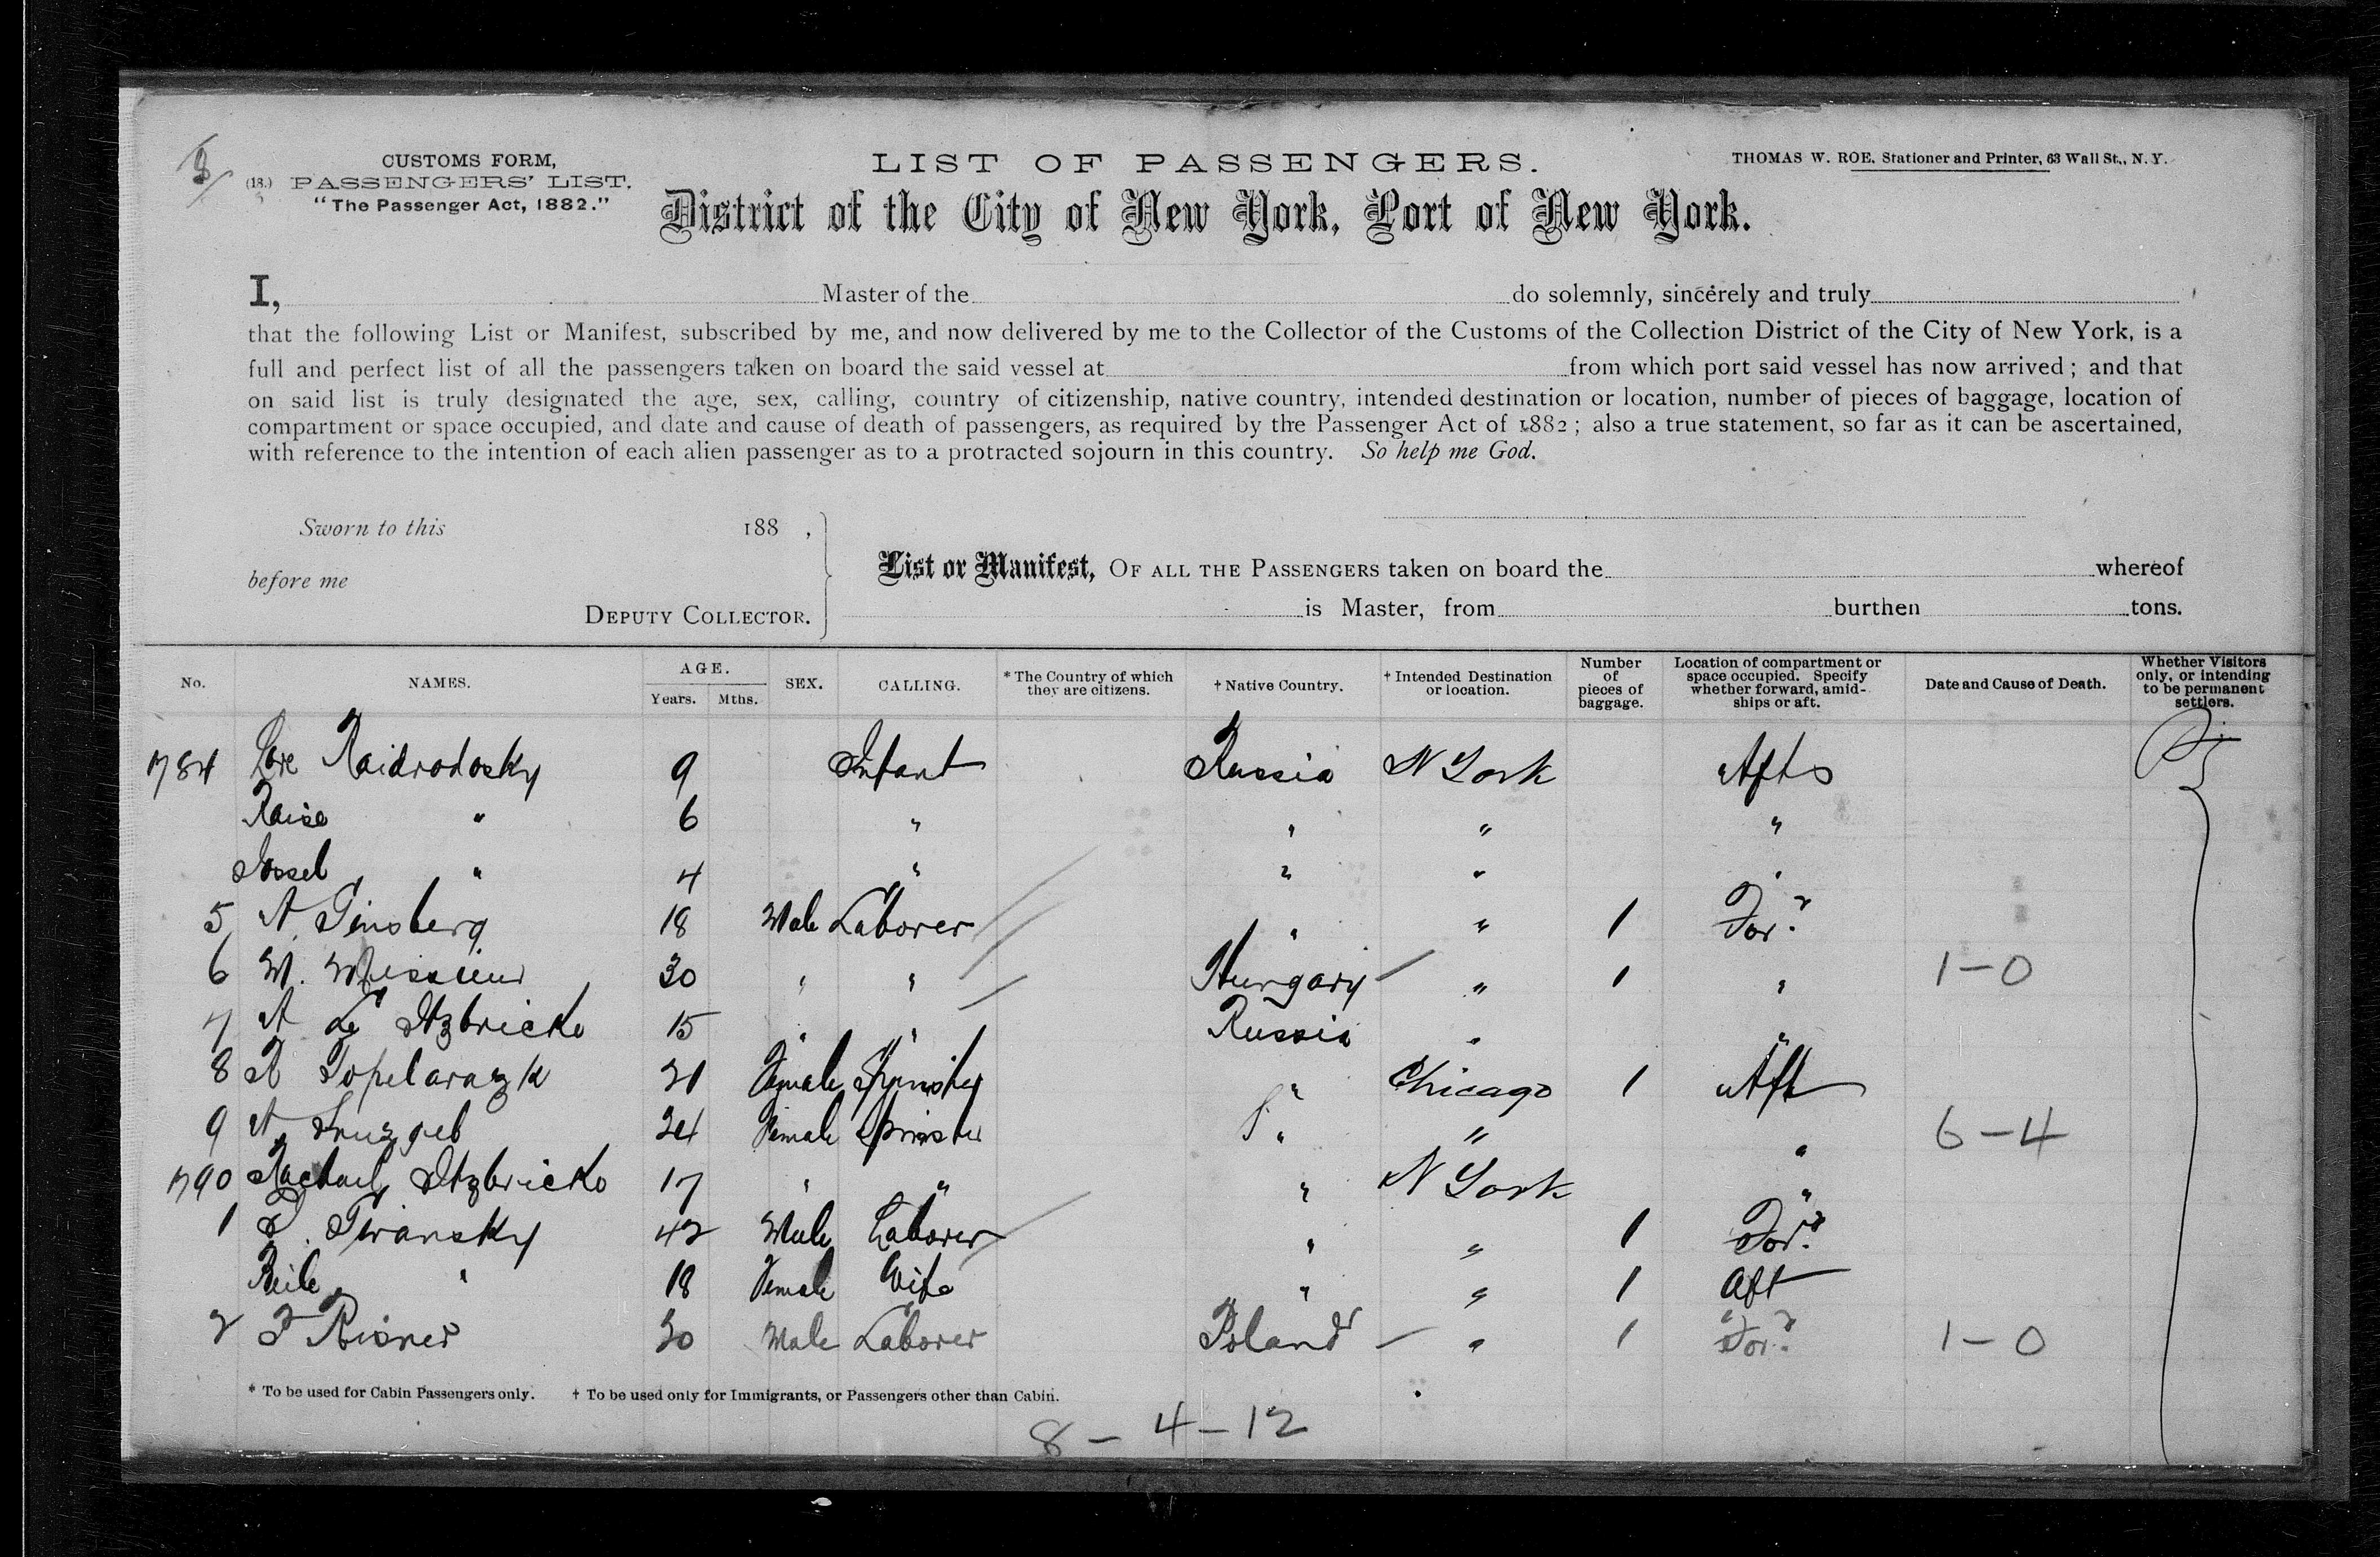 CUSTOMS FORM,
(18.) PASSENGERS' LIST.
"The Passenger Act, 1882."
LIST OF PASSENGERS.
THOMAS W. ROE, Stationer and Printer, 63 Wall St., N. Y.
District of the City of New York, Port of New York.
I, Master of the do solemnly, sincerely and truly
that the following List or Manifest, subscribed by me, and now delivered by me to the Collector of the Customs of the Collection District of the City of New York, is a
full and perfect list of all the passengers taken on board the said vessel at from which port said vessel has now arrived; and that
on said list is truly designated the age, sex, calling, country of citizenship, native country, intended destination or location, number of pieces of baggage, location of
compartment or space occupied, and date and cause of death of passengers, as required by the Passenger Act of 1882; also a true statement, so far as it can be ascertained,
with reference to the intention of each alien passenger as to a protracted sojourn in this country. So help me God.
Sworn to this 188 ,
before me
DEPUTY COLLECTOR.
List or Manifest, OF ALL THE PASSENGERS taken on board the whereof
is Master, from burthen tons.
No. NAMES. AGE. Years. Mths. SEX. CALLING. * The Country of which they are citizens. † Native Country. † Intended Destination or location. Number of pieces of baggage. Location of compartment or space occupied. Specify whether forward, amidships or aft. Date and Cause of Death. Whether Visitors only, or intending to be permanent settlers.
1784 Raidrodosky 9 Infant Russia N York Aft
Raise " 6 " " " "
Jossel " 4 " " " "
5 A. Ginsberg 18 Male Laborer " " 1 For.d
6 M. 30 " " Hungary " 1 " 1-0
7 A Itzbricko 15 " " Russia " "
8 21 Female Spinster " Chicago 1 Aft
9 A 24 Female Spinster " " " 6-4
1790 Rachael Itzbricko 17 " " " N York "
1 Twansky 42 Male Laborer " " 1 For.d
Beile " 18 Female Wife " " 1 Aft
2 F Risner 30 Male Laborer Poland " 1 For.d 1-0
* To be used for Cabin Passengers only. † To be used only for Immigrants, or Passengers other than Cabin.
8-4-12